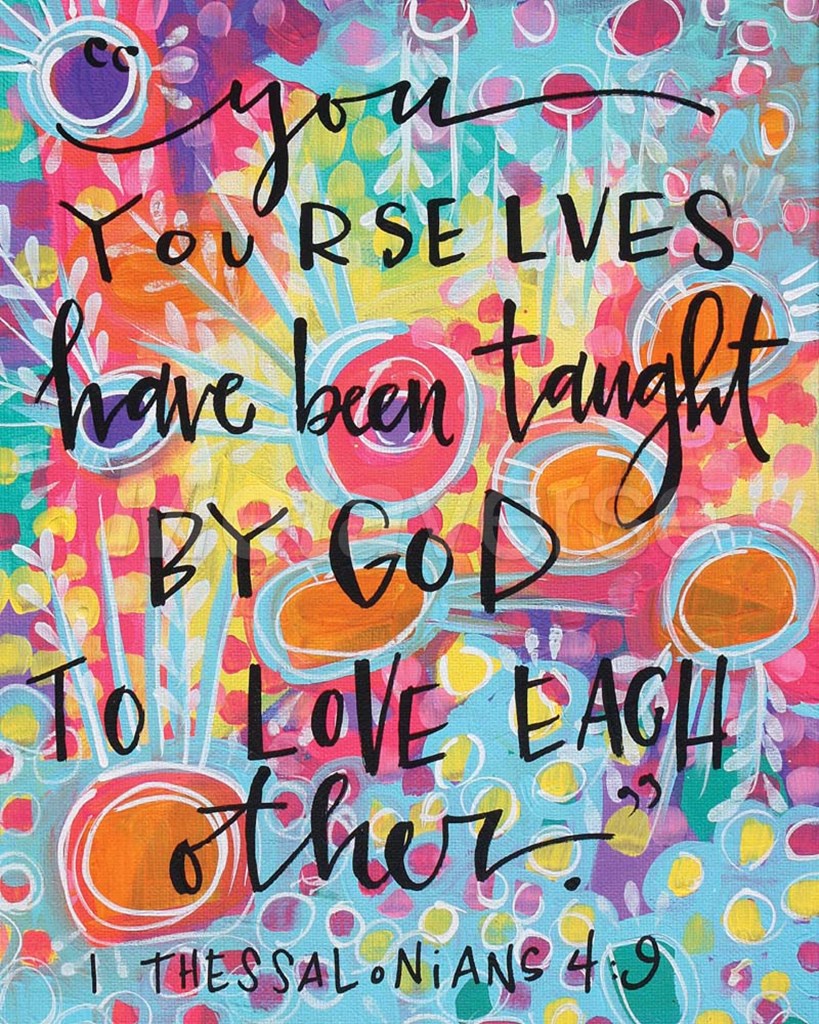 “you
YOURSELVES
have been taught
BY GOD
TO LOVE EACH
other.”
1 THESSALONIANS 4:9